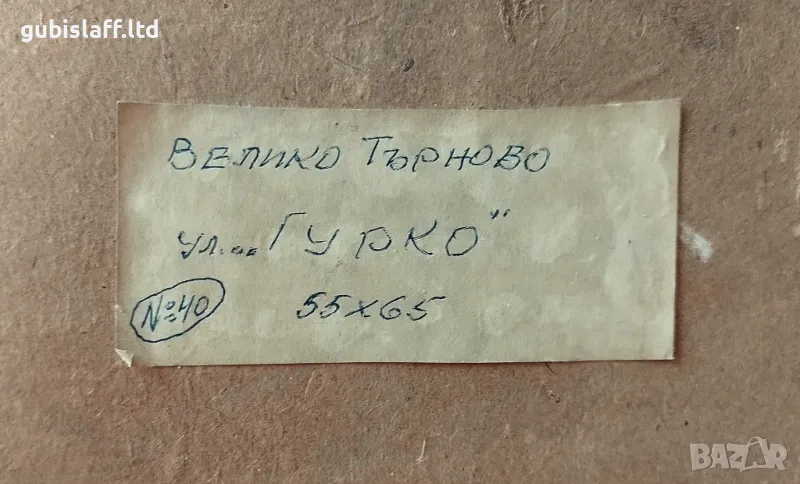 gubislaff.ltd
ВЕЛИКО ТЪРНОВО
ул. „ГУРКО"
№40
55х65
BAZAR